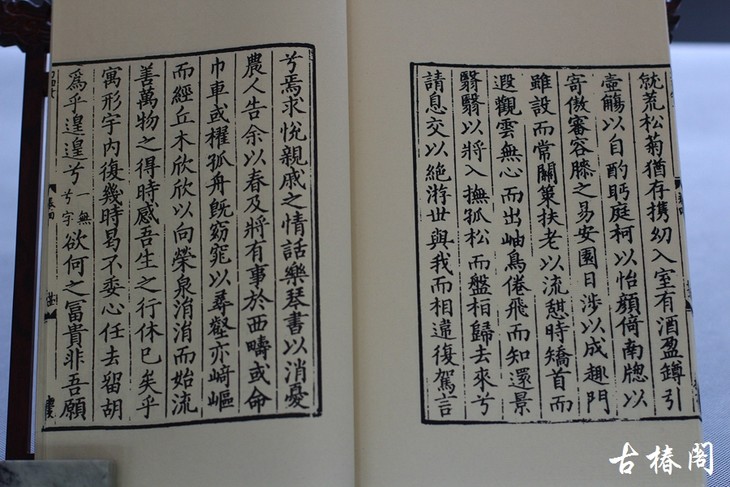 就荒松菊猶存携幼入室有酒盈罇引
壺觴以自酌眄庭柯以怡顔倚南牕以
寄傲審容膝之易安園日涉以成趣門
雖設而常關策扶老以流憩時矯首而
遐觀雲無心而出岫鳥倦飛而知還景
翳翳以將入撫孤松而盤桓歸去來兮
請息交以絕游世與我而相違復駕言
兮焉求悅親戚之情話樂琴書以消憂
農人告余以春及將有事於西疇或命
巾車或櫂孤舟旣窈窕以尋壑亦崎嶇
而經丘木欣欣以向榮泉涓涓而始流
善萬物之得時感吾生之行休已矣乎
寓形宇内復幾時曷不委心任去留胡
為乎遑遑兮一無兮字欲何之冨貴非吾願
古椿阁